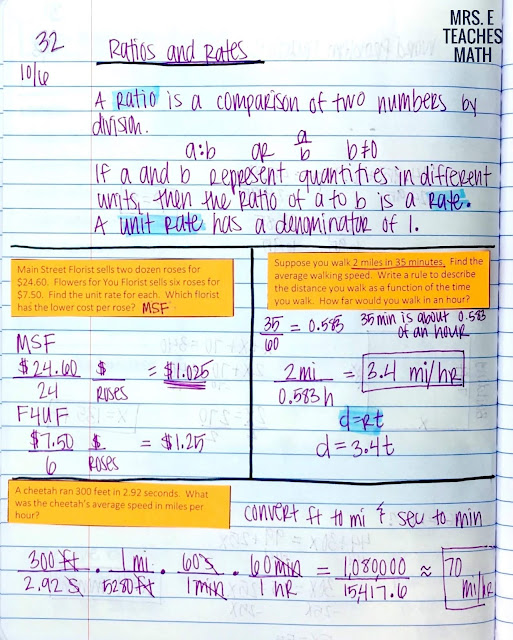 MRS. E
TEACHES
MATH
32
10/6
Ratios and Rates
A ratio is a comparison of two numbers by
division.
a:b or a/b b≠0
If a and b represent quantities in different
units, then the ratio of a to b is a rate.
A unit rate has a denominator of 1.
Main Street Florist sells two dozen roses for
$24.60. Flowers for You Florist sells six roses for
$7.50. Find the unit rate for each. Which florist
has the lower cost per rose? MSF
MSF
$24.60/24 $/roses = $1.025
F4UF
$7.50/6 $/roses = $1.25
Suppose you walk 2 miles in 35 minutes. Find the
average walking speed. Write a rule to describe
the distance you walk as a function of the time
you walk. How far would you walk in an hour?
35/60 = 0.583 35 min is about 0.583
of an hour
2mi/0.583h = 3.4 mi/hr
d=rt
d=3.4t
A cheetah ran 300 feet in 2.92 seconds. What
was the cheetah's average speed in miles per
hour?
convert ft to mi & sec to min
300 ft/2.92 s · 1 mi/5280 ft · 60 s/1 min · 60 min/1 hr = 1,080,000/15417.6 ≈ 70 mi/hr